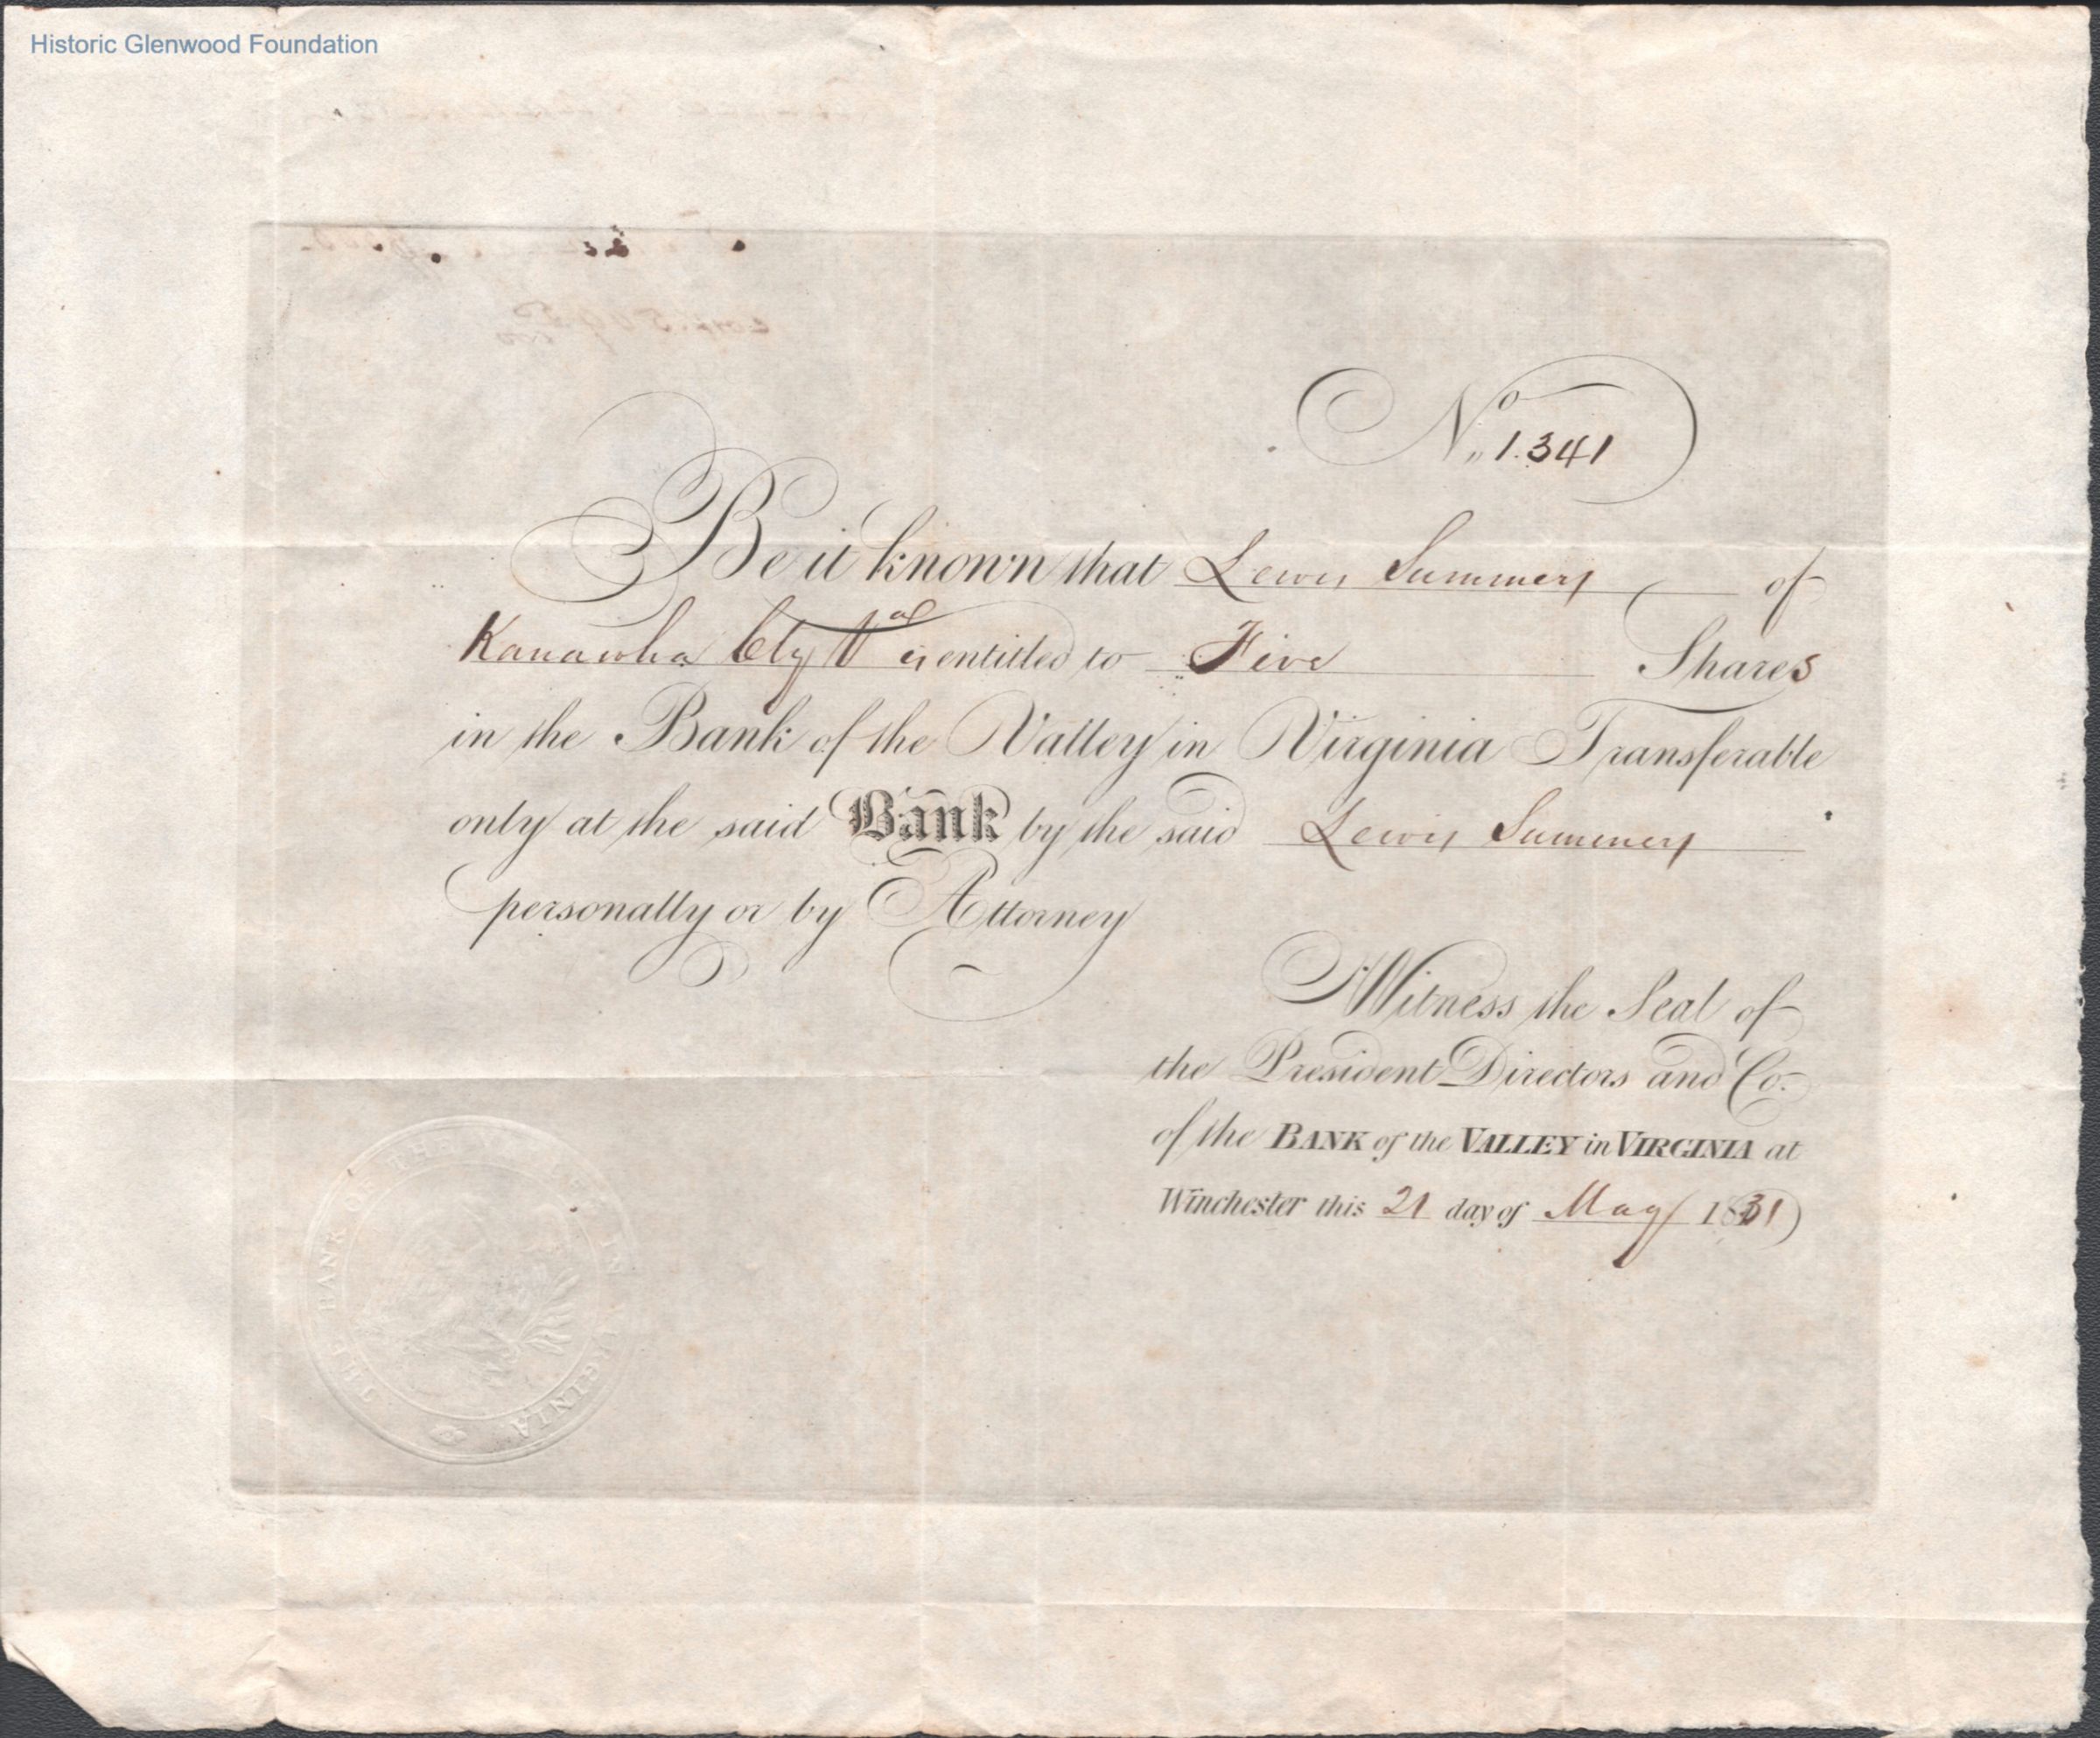 Historic Glenwood Foundation
No 1.341
Be it known that Lewis Summers of
Kanawha Cty Va is entitled to Five Shares
in the Bank of the Valley in Virginia Transferable
only at the said Bank by the said Lewis Summers
personally or by Attorney
Witness the Seal of
the President Directors and Co.
of the BANK of the VALLEY in VIRGINIA at
Winchester this 21 day of May 1831
THE BANK OF THE VALLEY IN VIRGINIA